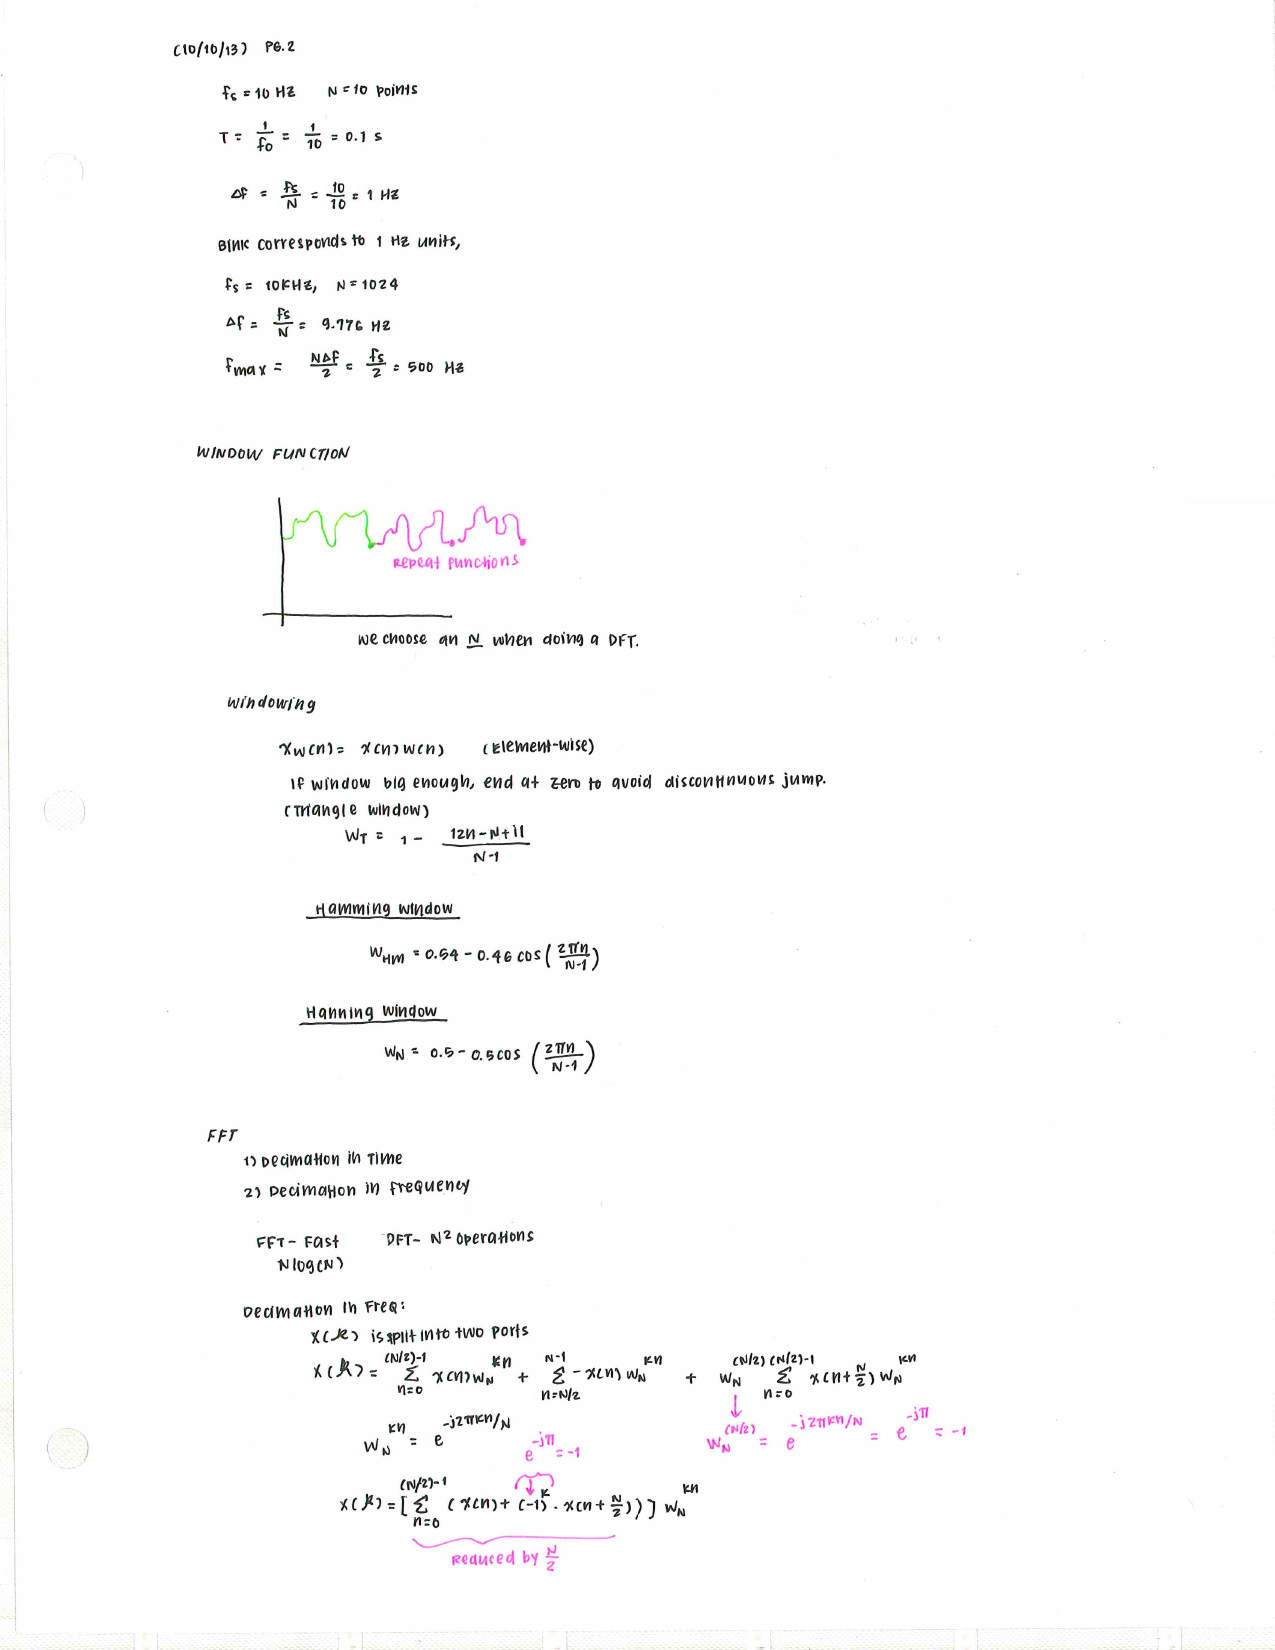 (10/10/13) PG.2
fs = 10 Hz N = 10 points
T = 1/fo = 1/10 = 0.1 s
Δf = fs/N = 10/10 = 1 Hz
BINK corresponds to 1 Hz units,
fs = 10KHz, N = 1024
Δf = fs/N = 9.776 Hz
fmax = NΔf/2 = fs/2 = 500 Hz
WINDOW FUNCTION
Repeat functions
We choose an N when doing a DFT.
Windowing
xw(n) = x(n)w(n) (Element-wise)
If window big enough, end at zero to avoid discontinuous jump.
(Triangle window)
WT = 1 - |2n-N+1|/N-1
Hamming window
WHM = 0.54 - 0.46 cos(2πn/N-1)
Hanning window
WN = 0.5 - 0.5cos (2πn/N-1)
FFT
1) Decimation in Time
2) Decimation in frequency
FFT - Fast DFT - N² operations
Nlog(N)
Decimation in Freq:
X(k) is split into two ports
X(k) = Σ_{n=0}^{(N/2)-1} x(n)W_N^{kn} + Σ_{n=N/2}^{N-1} -x(n)W_N^{kn} + W_N^{(N/2)} Σ_{n=0}^{(N/2)-1} x(n+N/2)W_N^{kn}
W_N^{kn} = e^{-j2πkn/N} e^{-jπ} = -1 W_N^{(N/2)} = e^{-j2πkn/N} = e^{-jπ} = -1
X(k) = [Σ_{n=0}^{(N/2)-1} (x(n) + (-1)^k · x(n+N/2))] W_N^{kn}
Reduced by N/2